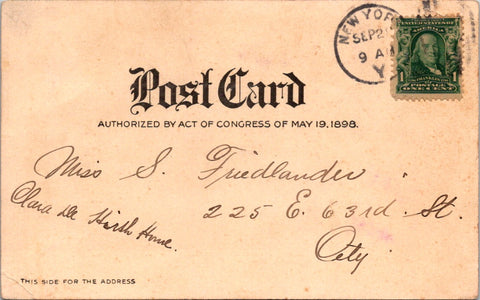 NEW YORK
SEP 2
9 A
Y
UNITED STATES OF AMERICA
FRANKLIN
1 1
POSTAGE
ONE CENT
Post Card
AUTHORIZED BY ACT OF CONGRESS OF MAY 19, 1898.
Miss S. Friedlander
Clara De Hirsh Home.
225 E. 63rd. St.
City
THIS SIDE FOR THE ADDRESS